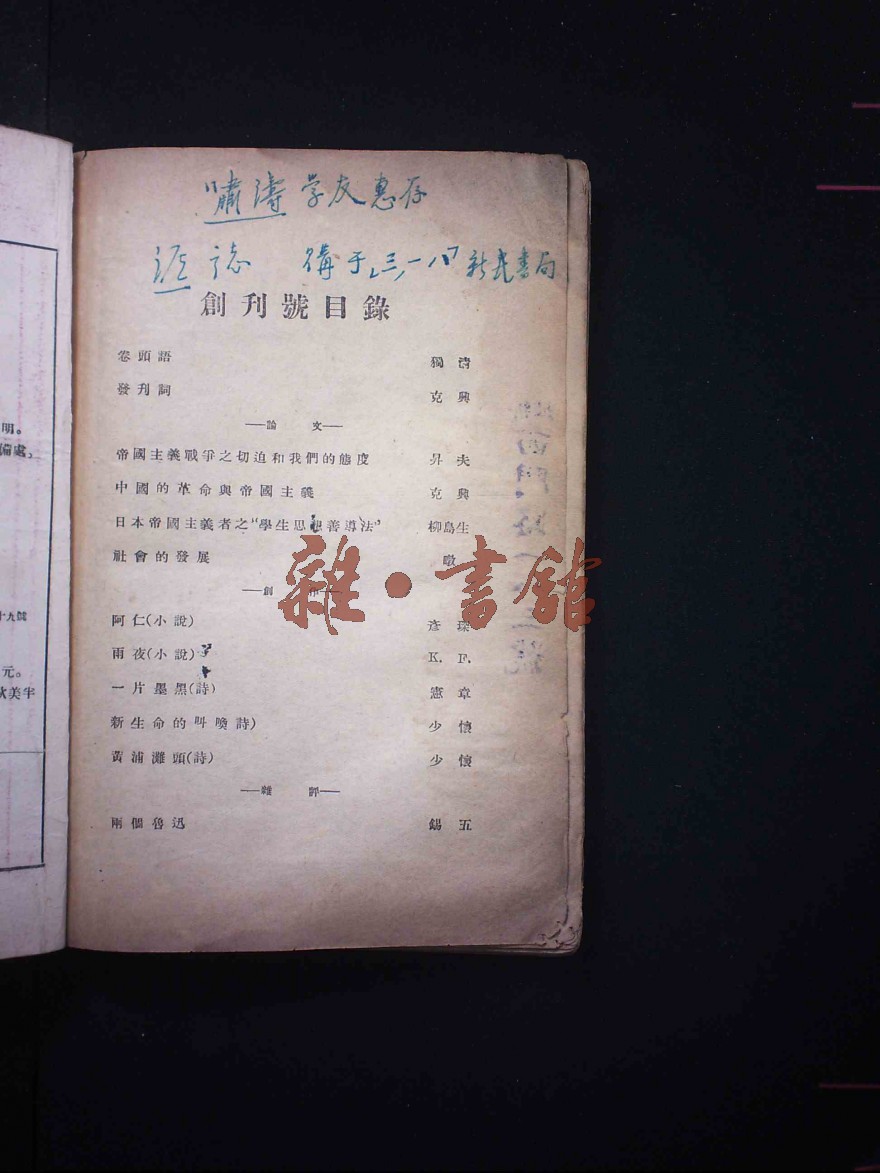 明。
備處，
十九號
元。
狄美半
嘯濤学友惠存
誌 購于 三，一八 新民書局
創刊號目錄
卷頭語 獨清
發刊詞 克興
——論 文——
帝國主義戰爭之切迫和我們的態度 昇夫
中國的革命與帝國主義 克興
日本帝國主義者之“學生思想善導法” 柳島生
社會的發展 暾
——創 作——
阿仁(小說) 彥
雨夜(小說) K. F.
一片墨黑(詩) 憲章
新生命的叫喚詩) 少懷
黃浦灘頭(詩) 少懷
——雜 評——
兩個魯迅 錫五
雜·書館